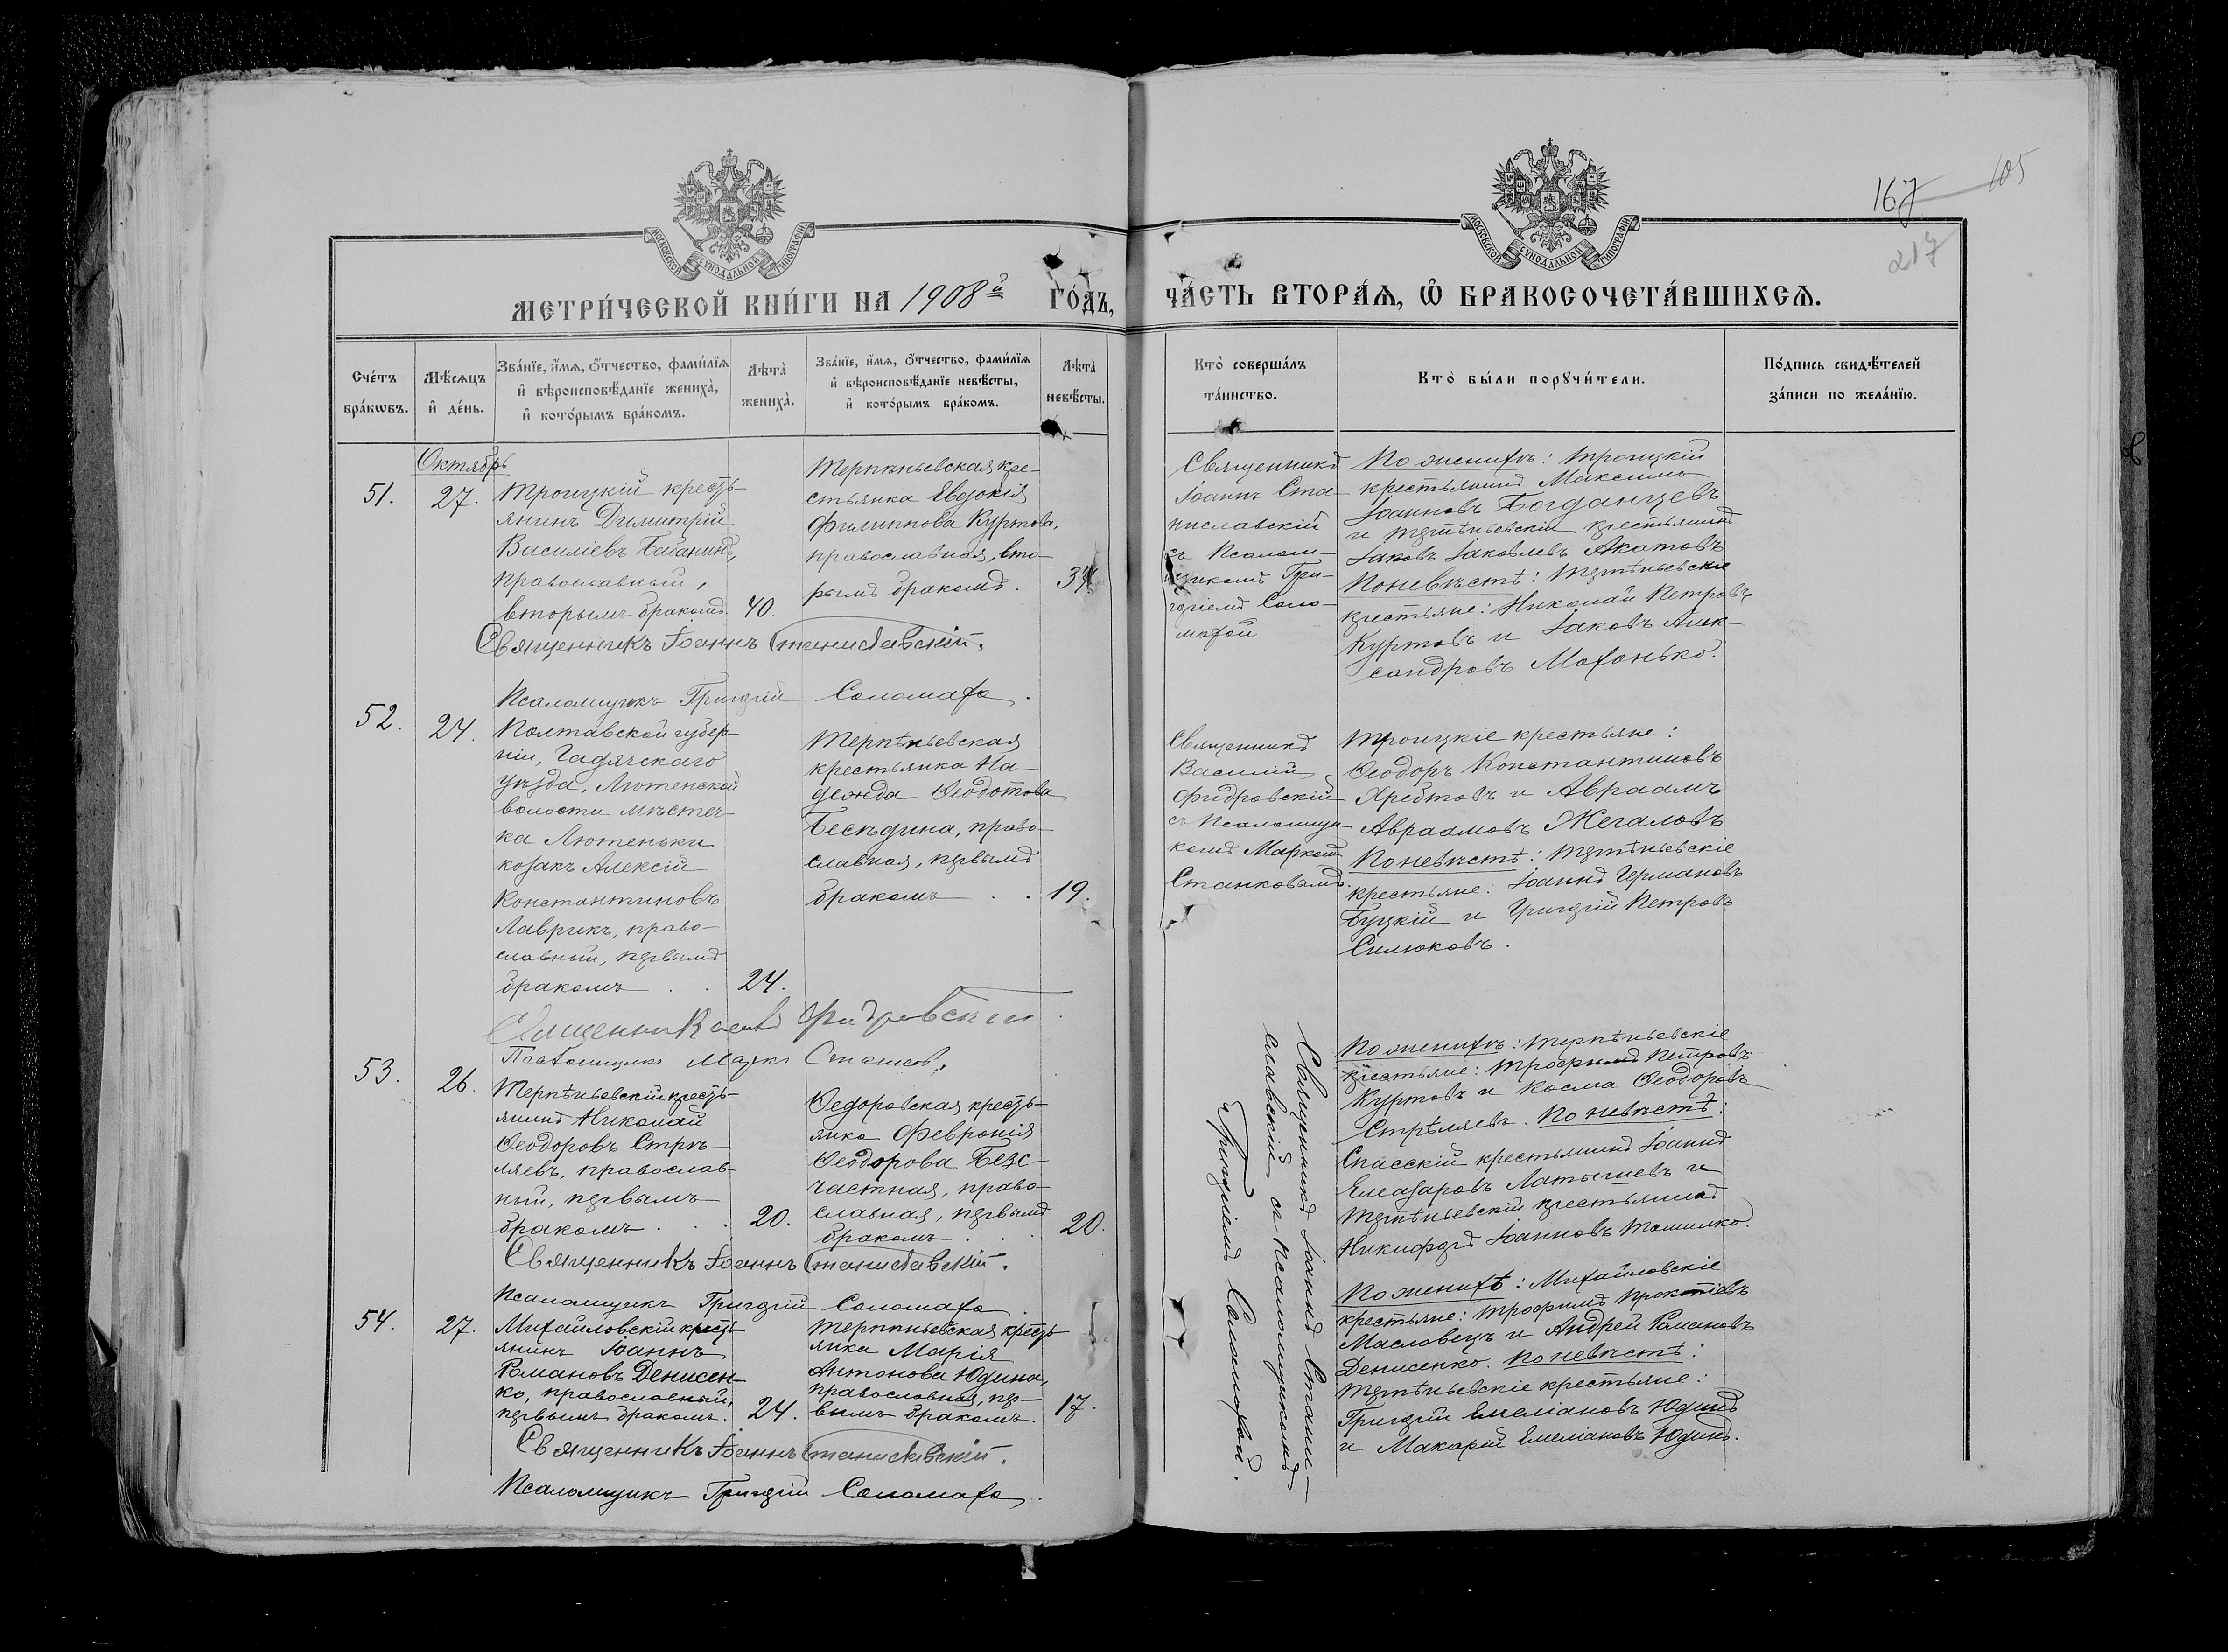 167
105
217
МОСКОВСКОЙ СѴНОДАЛЬНОЙ ТИПОГРАФІИ
МОСКОВСКОЙ СѴНОДАЛЬНОЙ ТИПОГРАФІИ
МЕТРИ́ЧЕСКОЙ КНИ́ГИ НА 1908й ГО́ДЪ,
ЧА́СТЬ ВТОРА́Ѧ, Ѽ БРАКОСОЧЕТА́ВШИХСѦ.
Сче́тъ бра́кѡвъ.
Мѣ́сѧцъ и҆ де́нь.
Зва́нїе, и҆́мѧ, ѻ҆́тчество, фами́лїѧ
и҆ вѣроисповѣ́данїе жениха̀,
и҆ кото́рымъ бра́комъ.
Лѣта̀ жениха̀.
Зва́нїе, и҆́мѧ, ѻ҆́тчество, фами́лїѧ
и҆ вѣроисповѣ́данїе невѣ́сты,
и҆ кото́рымъ бра́комъ.
Лѣта̀ невѣ́сты.
Кто̀ соверша́лъ
та́инство.
Кто̀ бы́ли порꙋчи́тели.
По́дпись свидѣ́телей
за́писи по жела́нїю.
Октябрь
51.
27.
Троицкій кресть-
янинъ Димитрій
Василіевъ
православный,
вторымъ бракомъ.
40.
Терпѣньевская кре-
стьянка Евдокія
Филиппова Куртова,
православная, вто-
рымъ бракомъ.
34
Священникъ
Іоаннъ Ста-
ниславскій
съ Псалом-
щикомъ Гри-
горіемъ Соло-
махой
По женихѣ: Троицкій
крестьянинъ Максимъ
Іоанновъ Богданцевъ
и терпѣньевскій крестьянинъ
Іаковъ Іаковлевъ Акатовъ
По невѣстѣ: Терпѣньевскіе
крестьяне: Николай Петровъ
Куртовъ и Іаковъ Алек-
сандровъ Мохонько.
Священникъ Іоаннъ Станиславскій.
Псаломщикъ Григорій Соломаха.
52.
24.
Полтавской губер-
ніи, Гадячскаго
уѣзда, Лютенской
волости мѣстеч-
ка Лютеньки
козакъ Алексій
Константиновъ
Лаврикъ, право-
славный, первымъ
бракомъ
24.
Терпѣньевская
крестьянка На-
дежда Ѳеодотова
Бесѣдина, право-
славная, первымъ
бракомъ
19.
Священникъ
Василій
Фидровскій
съ Псаломщи-
комъ Маркомъ
Станковымъ.
Троицкіе крестьяне:
Ѳеодоръ Константиновъ
Хребтовъ и Авраамъ
Авраамовъ Жегаловъ
По невѣстѣ: Терпѣньевскіе
крестьяне: Іоаннъ Германовъ
Буцкій и Григорій Петровъ
Силюковъ.
Фидровскій
Псаломщикъ Маркъ
53.
26.
Терпѣньевскій кресть-
янинъ Николай
Ѳеодоровъ Стрѣ-
ляевъ, православ-
ный, первымъ
бракомъ
20.
Ѳедоровская кресть-
янка Февронія
Ѳеодорова Безс-
частная, право-
славная, первымъ
бракомъ
20.
Священникъ Іоаннъ Стани-
славскій съ Псаломщикомъ
Григоріемъ Соломахой.
По женихѣ: Терпѣньевскіе
крестьяне: Трофимъ Петровъ
Куртовъ и Косма Ѳеодоровъ
Стрѣляевъ. По невѣстѣ:
Спасскій крестьянинъ Іоаннъ
Елеазаровъ Латышевъ и
терпѣньевскій крестьянинъ
Никифоръ Іоанновъ Томилко.
Священникъ Іоаннъ Станиславскій.
Псаломщикъ Григорій Соломаха.
54.
27.
Михайловскій кресть-
янинъ Іоаннъ
Романовъ Денисен-
ко, православный,
первымъ бракомъ.
24.
Терпѣньевская кресть-
янка Марія
Антонова Юдина,
православная, пер-
вымъ бракомъ.
17.
По женихѣ: Михайловскіе
крестьяне: Трофимъ Прокопіевъ
Масловецъ и Андрей Романовъ
Денисенко. По невѣстѣ:
Терпѣньевскіе крестьяне:
Григорій Емеліановъ Юдинъ
и Макарій Емеліановъ Юдинъ.
Священникъ Іоаннъ Станиславскій.
Псаломщикъ Григорій Соломаха.